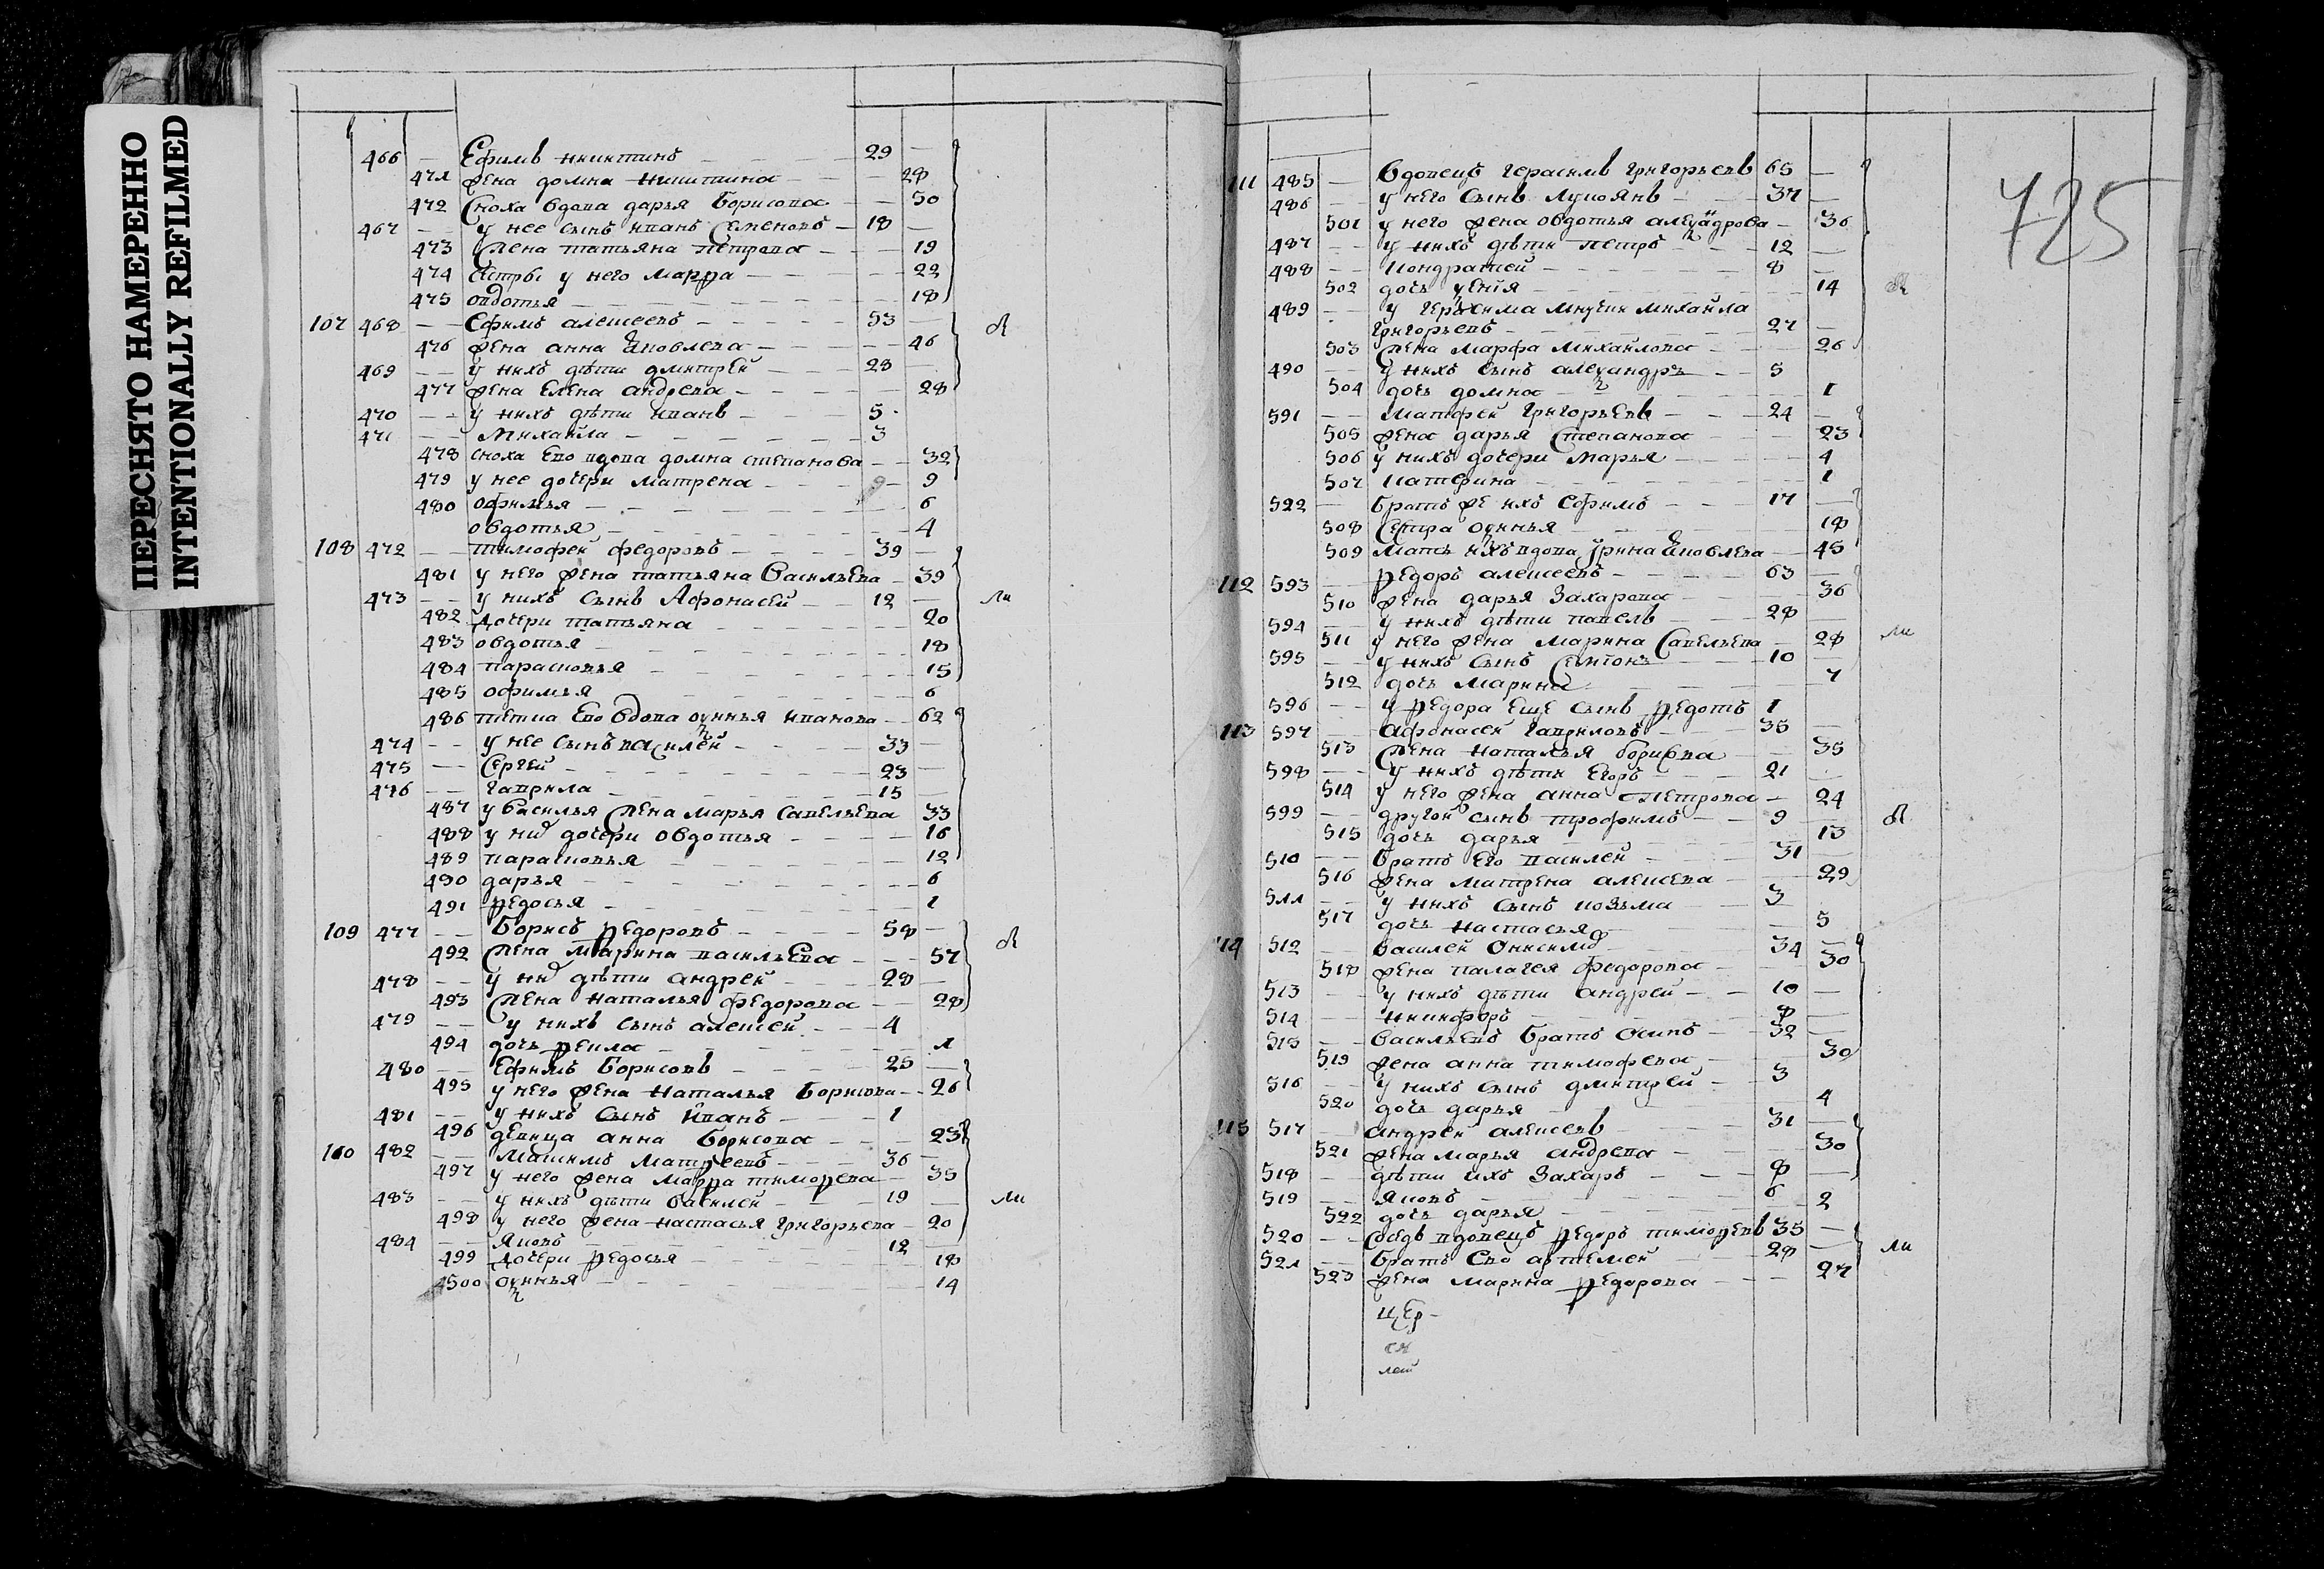 ПЕРЕСНЯТО НАМЕРЕННО
INTENTIONALLY REFILMED
466 — Ефимъ никитинъ 29 —
471 жена домна никитина — 28
472 Сноха вдова дарья борисова — 50
467 — у нее сынъ иванъ Семеновъ 18 —
473 жена татьяна петрова — 19
474 сестры у него марфа — 22
475 овдотья 18
107 468 — Ефимъ алексеевъ 53 —
476 жена анна яковлева — 46
469 — у нихъ дѣти дмитрей 23 —
477 жена елена андреева 28
470 — у нихъ дѣти иванъ 5
471 — Михаила 3
478 сноха ево вдова домна степанова — 32
479 у нее дочери матрена — 9
480 офимья 6
овдотья 4
108 472 — тимофей федоровъ 39 —
481 у него жена татьяна васильева 39
473 — у нихъ сынъ Афонасей 12 —
482 дочери татьяна 20
483 овдотья 18
484 парасковья 15
485 офимья 6
486 тетка ево вдова иванова 62
474 — у нее сынъ василей 33 —
475 — Сергей 23 —
476 — гаврила 15
487 у василья жена марья савельева 33
488 у них дочери овдотья 16
489 парасковья 12
490 дарья 6
491 федосья 1
109 477 — борисъ федоровъ 58 —
492 жена марина васильева — 57
478 — у них дѣти андрей 28 —
493 жена наталья федорова — 28
479 — у нихъ сынъ алексей 4
494 дочь 1
480 — ефимъ борисовъ 25 —
495 у него жена наталья борисова 26
481 — у нихъ сынъ иванъ 1
496 девица анна борисова 23
110 482 — максимъ матфеевъ 36 —
497 у него жена марфа тимофеева 35
483 — у нихъ дѣти василей 19 —
498 у него жена настасья григорьева 20
484 — яковъ 12 —
499 дочери федосья 18
500 14
725
111 485 — вдовецъ герасимъ григорьевъ 65 —
486 — у него сынъ лукоянъ 37 —
501 у него жена овдотья александрова 36
487 — у нихъ дѣти петръ 12 —
488 — кондратей 8 —
502 дочь 14
489 — у герасима михаила
григорьевъ 27 —
503 жена марфа михайлова 26
490 — у нихъ сынъ александръ 5
504 дочь домна 1
591 — матфей григорьевъ 24 —
505 жена дарья степанова 23
506 у нихъ дочери марья 4
507 катерина 1
522 — братъ же ихъ ефимъ 17 —
508 сестра 18
509 мать ихъ вдова ирина яковлева 45
112 593 — федоръ алексеевъ 63 —
510 жена дарья захарова 36
594 — у нихъ дѣти павелъ 28 —
511 у него жена марина савельева 28
595 — у нихъ сынъ семионъ 10 —
512 дочь марина 7
596 — у федора еще сынъ федотъ 1
113 597 — афонасей гавриловъ 35 —
513 жена наталья борисова 35
598 — у нихъ дѣти егоръ 21 —
514 у него жена анна петрова 24
599 — другой сынъ трофимъ 9 —
515 дочь дарья 13
510 — братъ его василей 31 —
516 жена матрена алексеева 29
511 — у нихъ сынъ козьма 3
517 дочь настасья 5
114 512 — василей онисимов 34 —
518 жена палагея федорова 30
513 — у нихъ дѣти андрей 10 —
514 — никифоръ 8 —
515 — васильевъ братъ осипъ 32
519 жена анна тимофеева 30
516 — у нихъ сынъ дмитрей 3
520 дочь дарья 4
115 517 — андрей алексеевъ 31 —
521 жена марья андреева 30
518 — дѣти ихъ захаръ 8 —
519 — яковъ 6
522 дочь дарья 2
520 — соседъ вдовецъ федоръ тимофеевъ 35 —
521 — братъ ево артемей 28 —
523 жена марина федорова 27
цер-
ск
лей